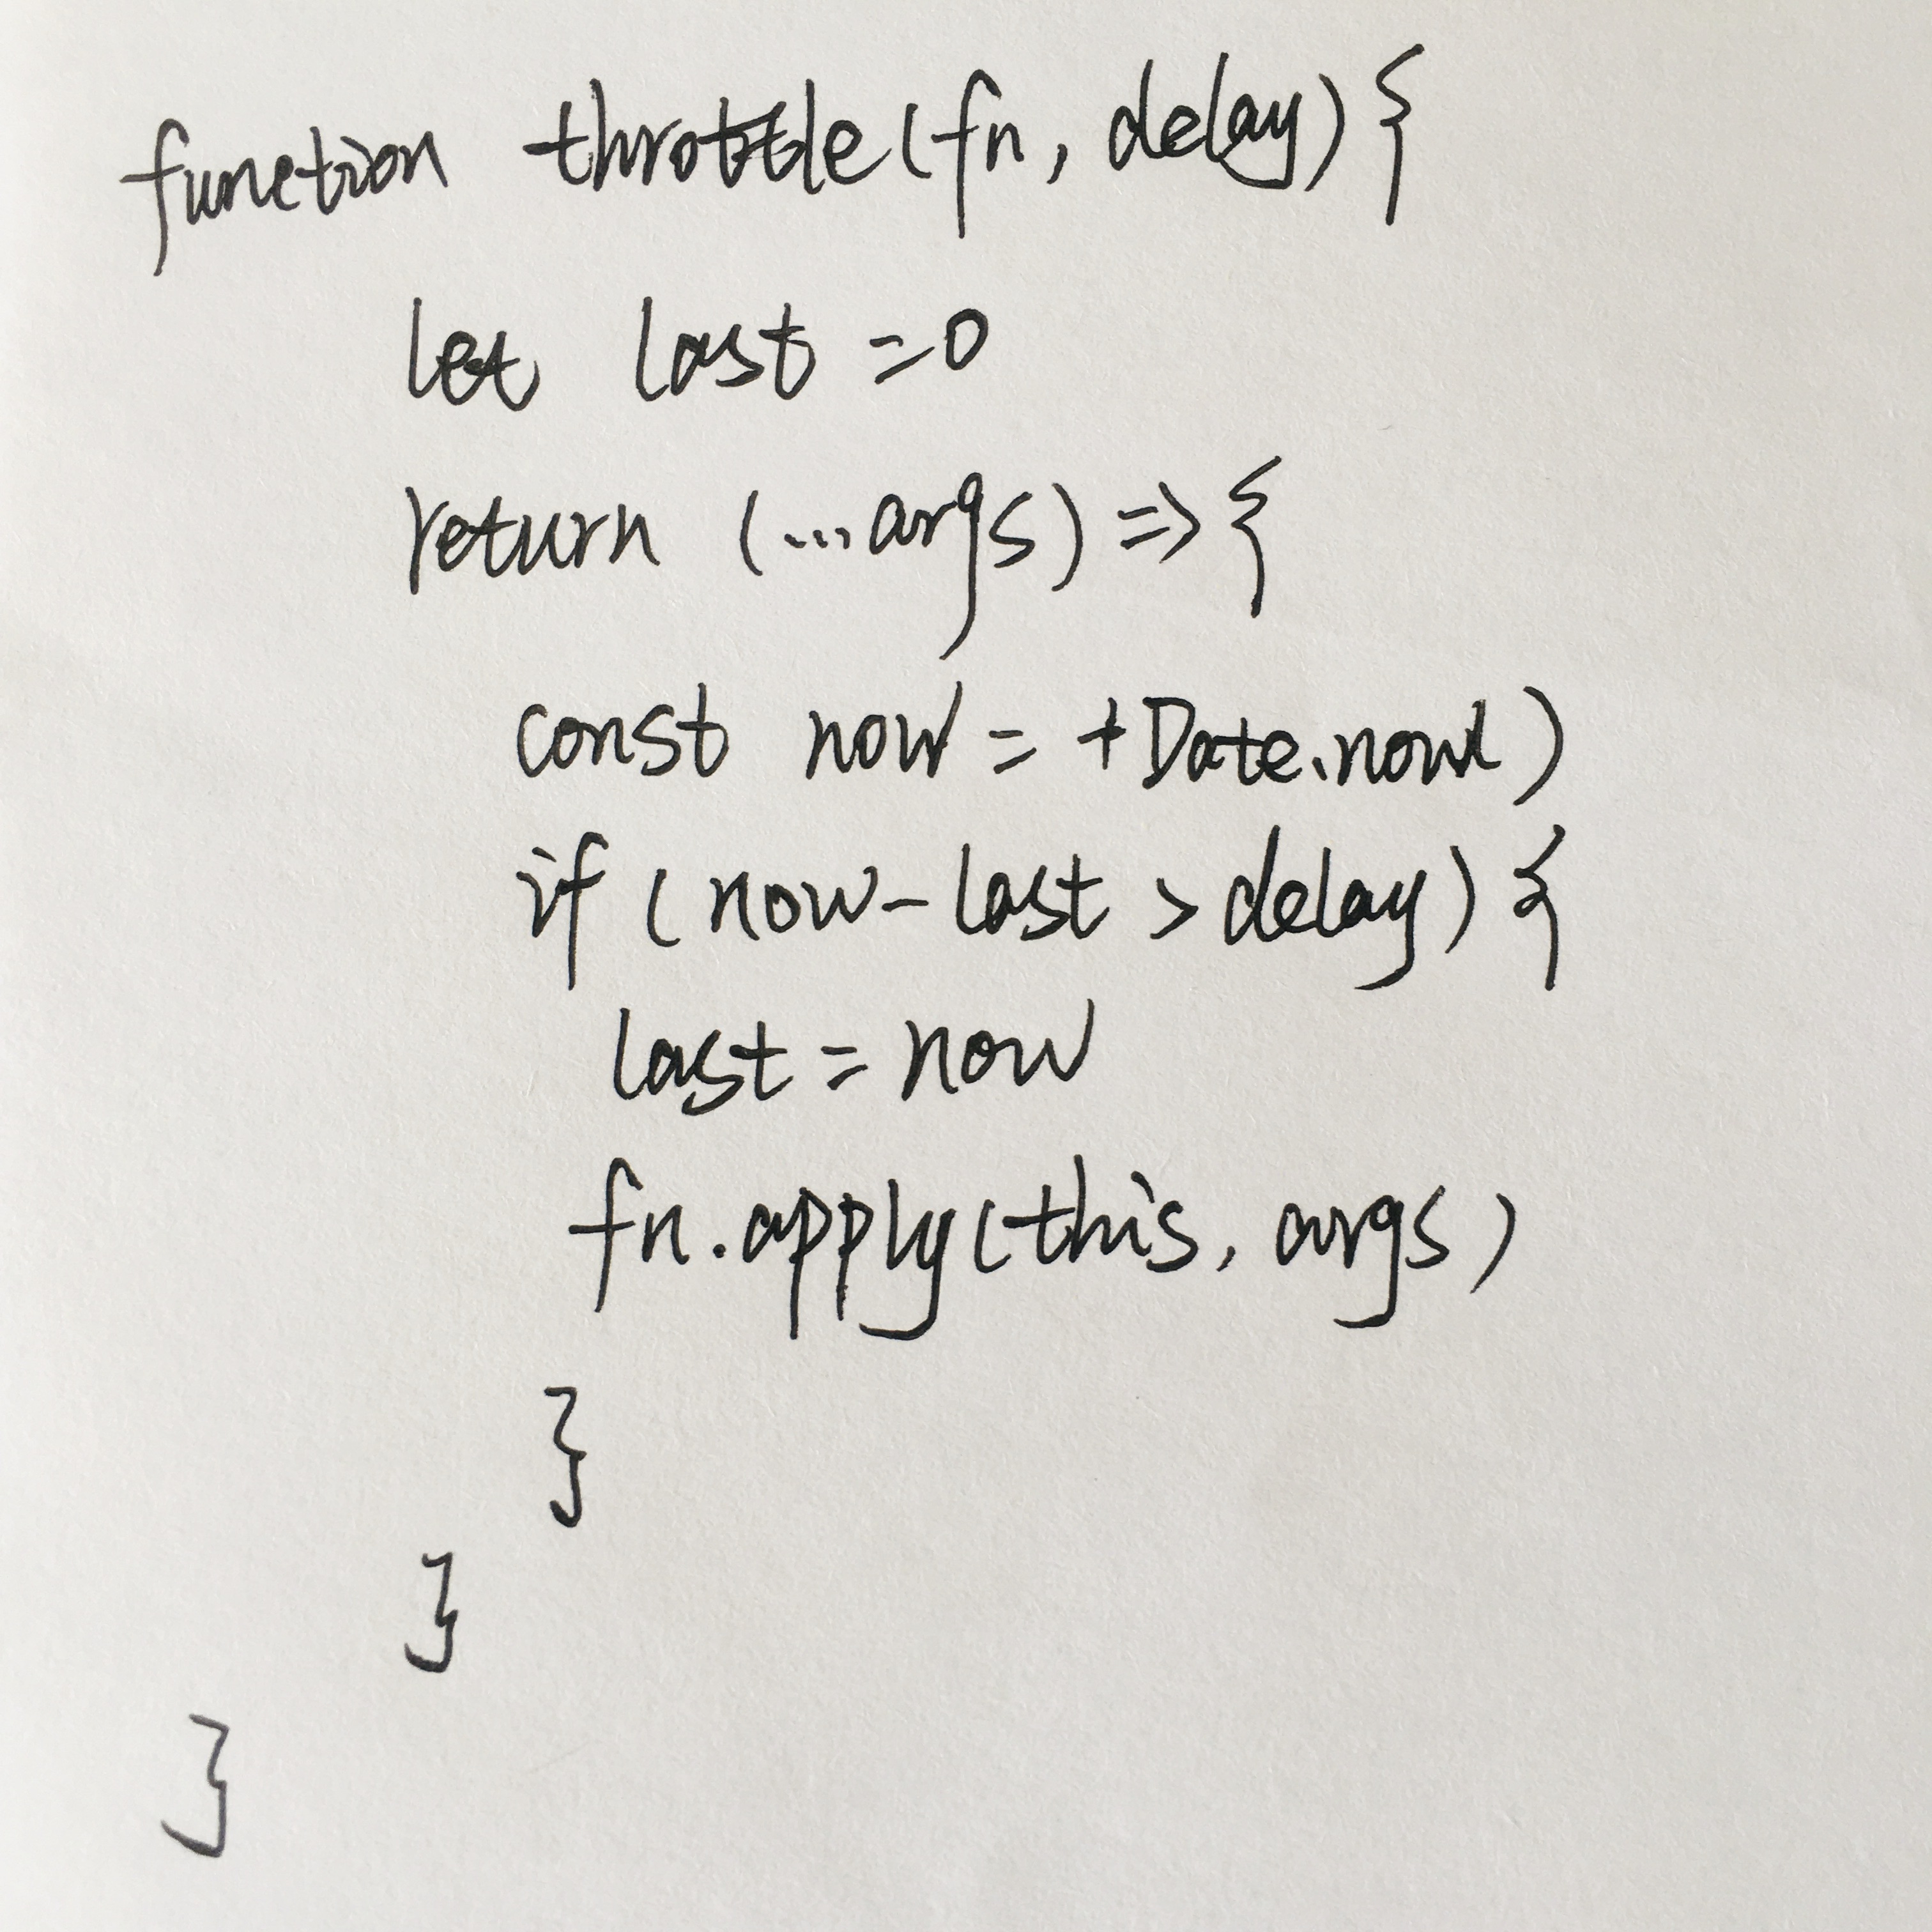 function throttle(fn, delay){
let last =0
return (...args) =>{
const now = +Date.now()
if (now-last > delay) {
last = now
fn.apply(this, args)
}
}
}